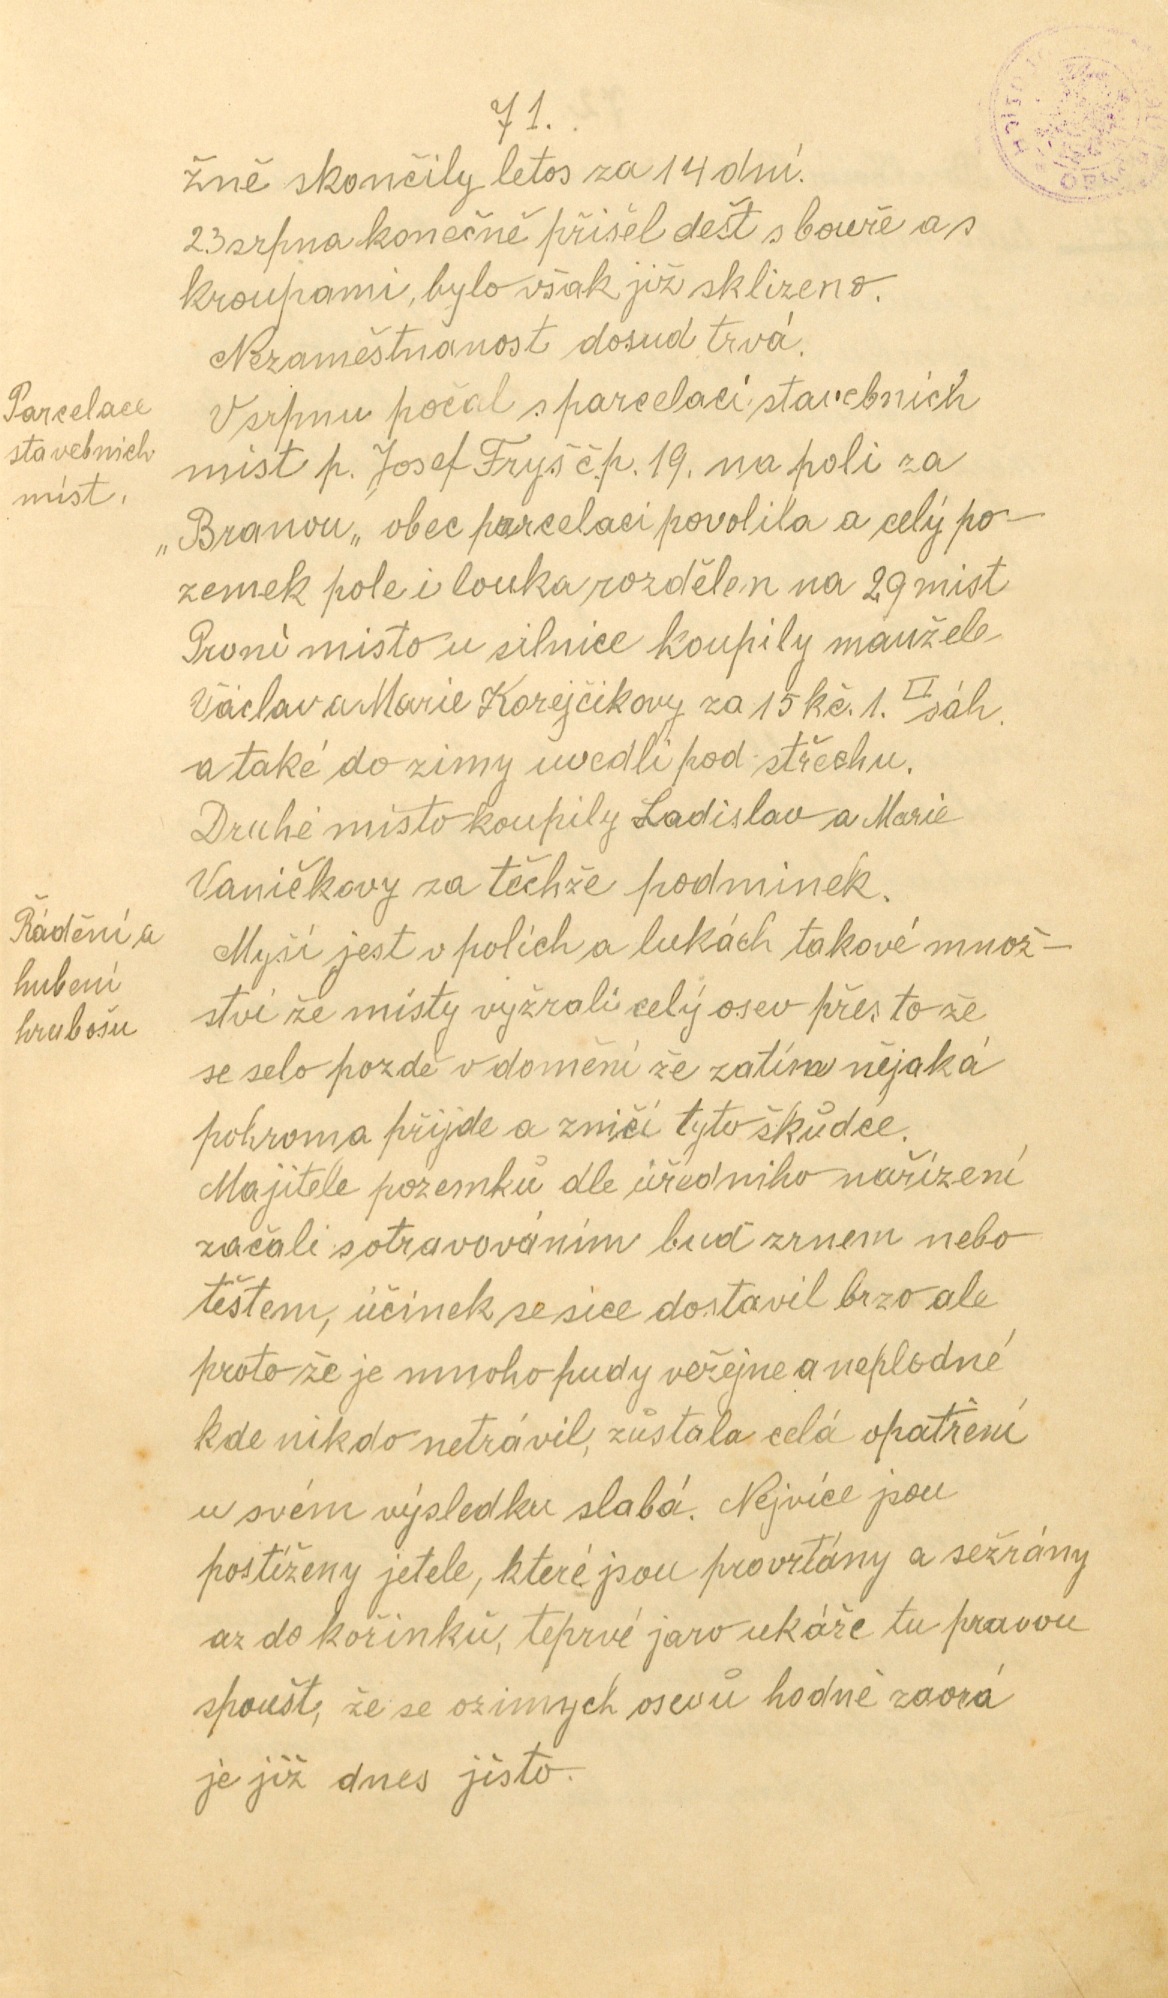 71.
žně skončily letos za 14 dní.
23 srpna konečně přišel dešt s bouře a s
kroupami, bylo však již sklizeno.
Nezaměstnanost dosud trvá.
Parcelace
stavebních
míst.
V srpnu počal s parcelací stavebních
míst p. Josef Fryš č.p. 19. na poli za
„Branou„ obec parcelaci povolila a celý po-
zemek pole i louka rozdělen na 29 míst
První místo u silnice koupily manžele
Václav a Marie Korejčikovy za 15 kč. 1. □ sáh.
a také do zimy uvedli pod střechu.
Druhé místo koupily Ladislav a Marie
Vaničkovy za těchže podmínek.
Řádění a
hubení
hrabošu
Myší jest v polích a lukách takové množ-
ství že místy vyžrali celý osev přes to že
se selo pozdě v domění že zatím nějaká
pohroma přijde a zničí tyto škůdce.
Majitele pozemků dle úředniho nařízení
začali s otravováním bud zrnem nebo
těstem, účinek se sice dostavil brzo ale
proto že je mnoho pudy veřejne a neplodné
kde nikdo netrávil, zůstala celá opatření
u svém výsledku slabá. Nejvíce jsou
postíženy jetele, které jsou provrtány a sežrány
az do kořinků, teprvé jaro ukáže tu pravou
spoušt, že se ozimych osevů hodně zaorá
je již dnes jisto.